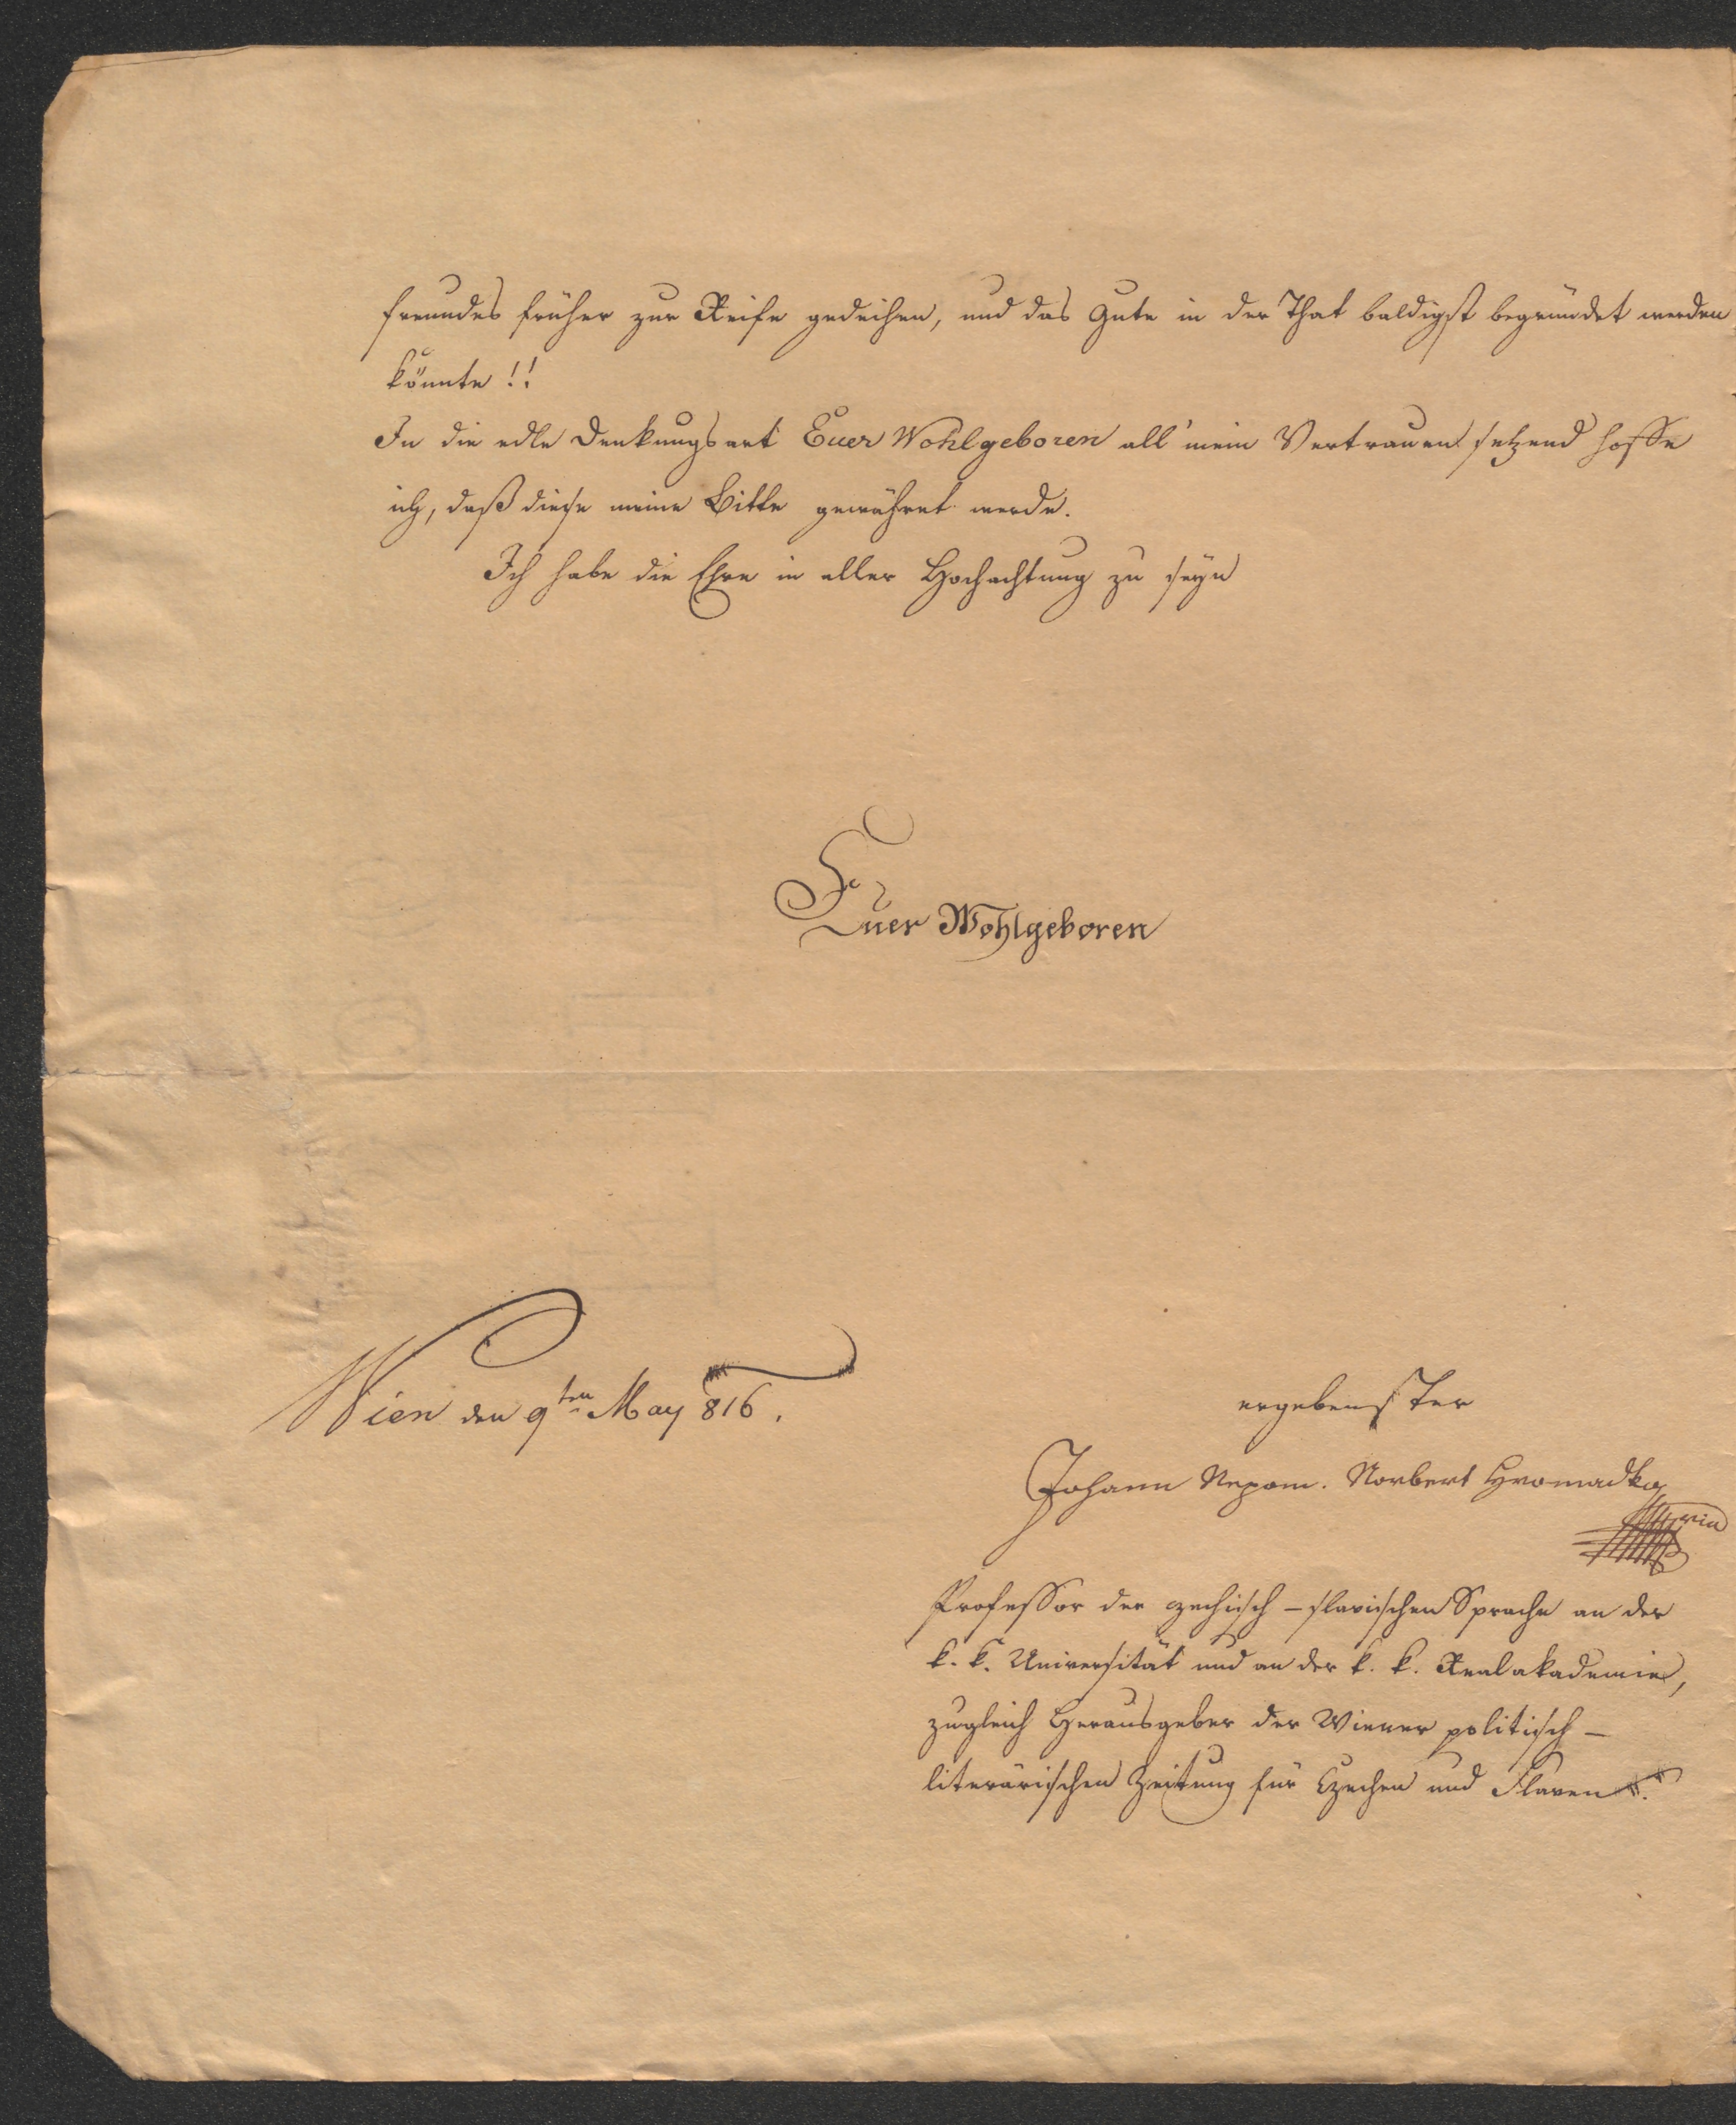 freundes früher zur Reife gedeihen, und das Gute in der That baldigst begründet werden
könnte!!
In die edle Denkungsart Euer Wohlgeboren all' mein Vertrauen setzend hoffe
ich, daß diese meine Bitte gewähret werde.
Ich habe die Ehre in aller Hochachtung zu seyn
Euer Wohlgeboren
Wien den 9ten May 816.
ergebenster
Johann Nepom. Norbert Hromadko
Professor der czechisch-slavischen Sprache an der
k. k. Universität und an der k. k. Realakademie,
zugleich Herausgeber der Wiener politisch-
literärischen Zeitung für Czechen und Slaven